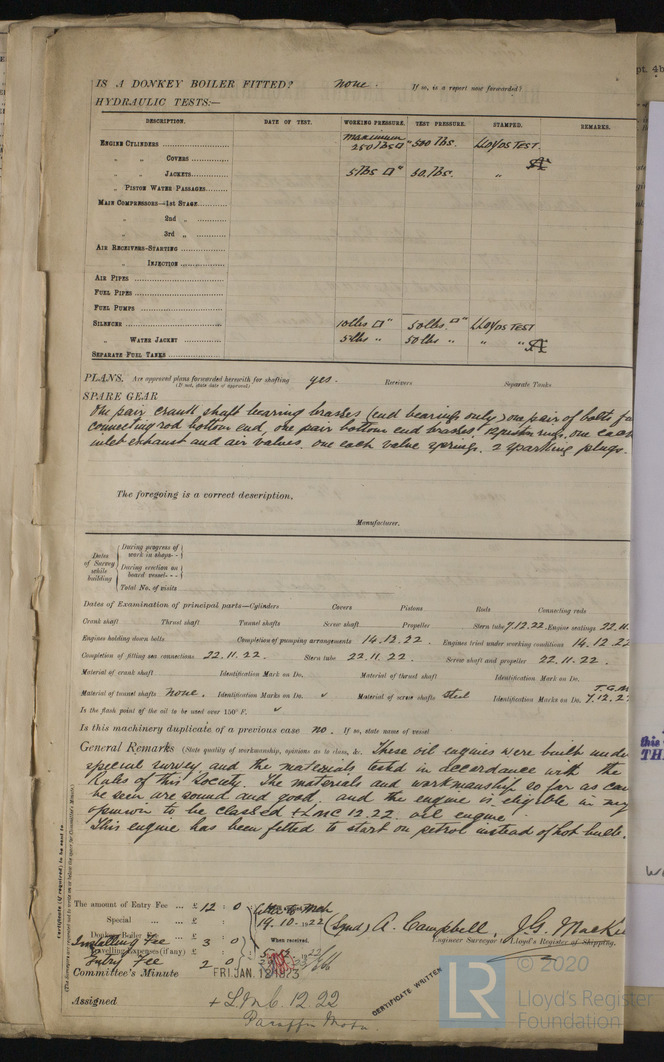 IS A DONKEY BOILER FITTED? none. If so, is a report now forwarded?
HYDRAULIC TESTS:—
DESCRIPTION. DATE OF TEST. WORKING PRESSURE. TEST PRESSURE. STAMPED. REMARKS.
ENGINE CYLINDERS maximum 250 lbs □" 500 lbs. LLOYDS TEST
" " COVERS
" " JACKETS 5 lbs □" 50 lbs. "
" PISTON WATER PASSAGES
MAIN COMPRESSORS—1st STAGE
" 2nd "
" 3rd "
AIR RECEIVERS—STARTING
" INJECTION
AIR PIPES
FUEL PIPES
FUEL PUMPS
SILENCER 10 lbs □" 50 lbs. □" LLOYDS TEST
" WATER JACKET 5 lbs " 50 lbs " " "
SEPARATE FUEL TANKS
PLANS. Are approved plans forwarded herewith for shafting yes. Receivers Separate Tanks
(If not, state date of approval)
SPARE GEAR
One pair crank shaft bearing brasses (end bearings only) one pair of bolts for
connecting rod bottom end, one pair bottom end brasses, 12 piston rings, one each
inlet exhaust and air valves. one each valve springs. 2 sparking plugs.
The foregoing is a correct description,
Manufacturer.
Dates of Survey while building
During progress of work in shops--
During erection on board vessel---
Total No. of visits
Dates of Examination of principal parts—Cylinders Covers Pistons Rods Connecting rods
Crank shaft Thrust shaft Tunnel shafts Screw shaft Propeller Stern tube 7.12.22. Engine seatings 22.11.
Engines holding down bolts Completion of pumping arrangements 14.12.22. Engines tried under working conditions 14.12.22
Completion of fitting sea connections 22.11.22. Stern tube 22.11.22. Screw shaft and propeller 22.11.22.
Material of crank shaft Identification Mark on Do. Material of thrust shaft Identification Mark on Do.
Material of tunnel shafts none. Identification Marks on Do. Material of screw shafts steel Identification Marks on Do. 7.12.2
Is the flash point of the oil to be used over 150° F.
Is this machinery duplicate of a previous case no. If so, state name of vessel
General Remarks (State quality of workmanship, opinions as to class, &c. These oil engines were built unde
special survey and the materials tested in accordance with the
Rules of this Society. The materials and workmanship so far as can
be seen are sound and good. and the engine is eligible in my
opinion to be classed +LMC 12.22. oil engine.
This engine has been fitted to start on petrol instead of hot bulb.
The amount of Entry Fee ... £ 12 : 0
Special ... ... £
Donkey Boiler Fee ... £
Installing Fee 3 0
Travelling Expenses (if any) £
Entry Fee 2 0
19.10.1922
When received.
(Sgnd) A. Campbell, J.G. Mackie
Engineer Surveyor to Lloyd's Register of Shipping.
Committee's Minute FRI. JAN. 12 1923
Assigned + L.M.C. 12.22
Paraffin Motor
CERTIFICATE WRITTEN
© 2020
LR
Lloyd's Register
Foundation